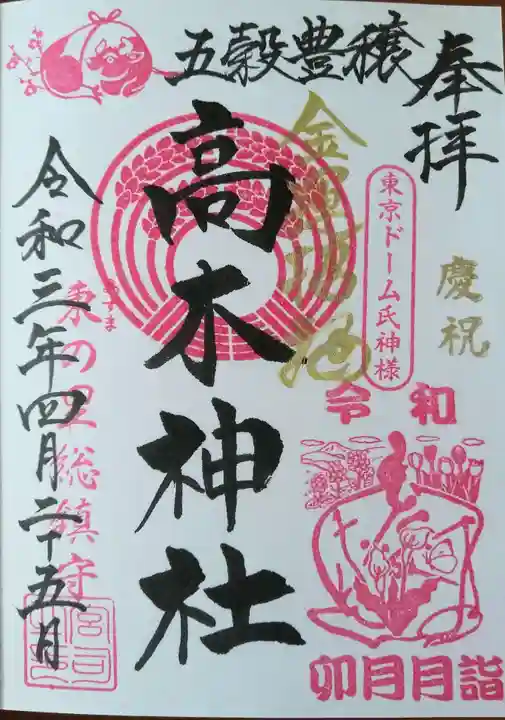 奉拝
慶祝
東京ドーム氏神様
五穀豊穣
高木神社
令和
卯月月詣
あずま
東の里総鎮守
令和三年四月二十五日